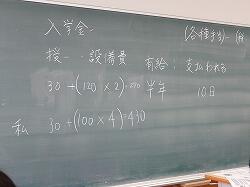 入学金
授‥設備費
30+(120×2)=270 半年
私 30+(100×4)=430
(各種手当)
有給:支払われる
10日